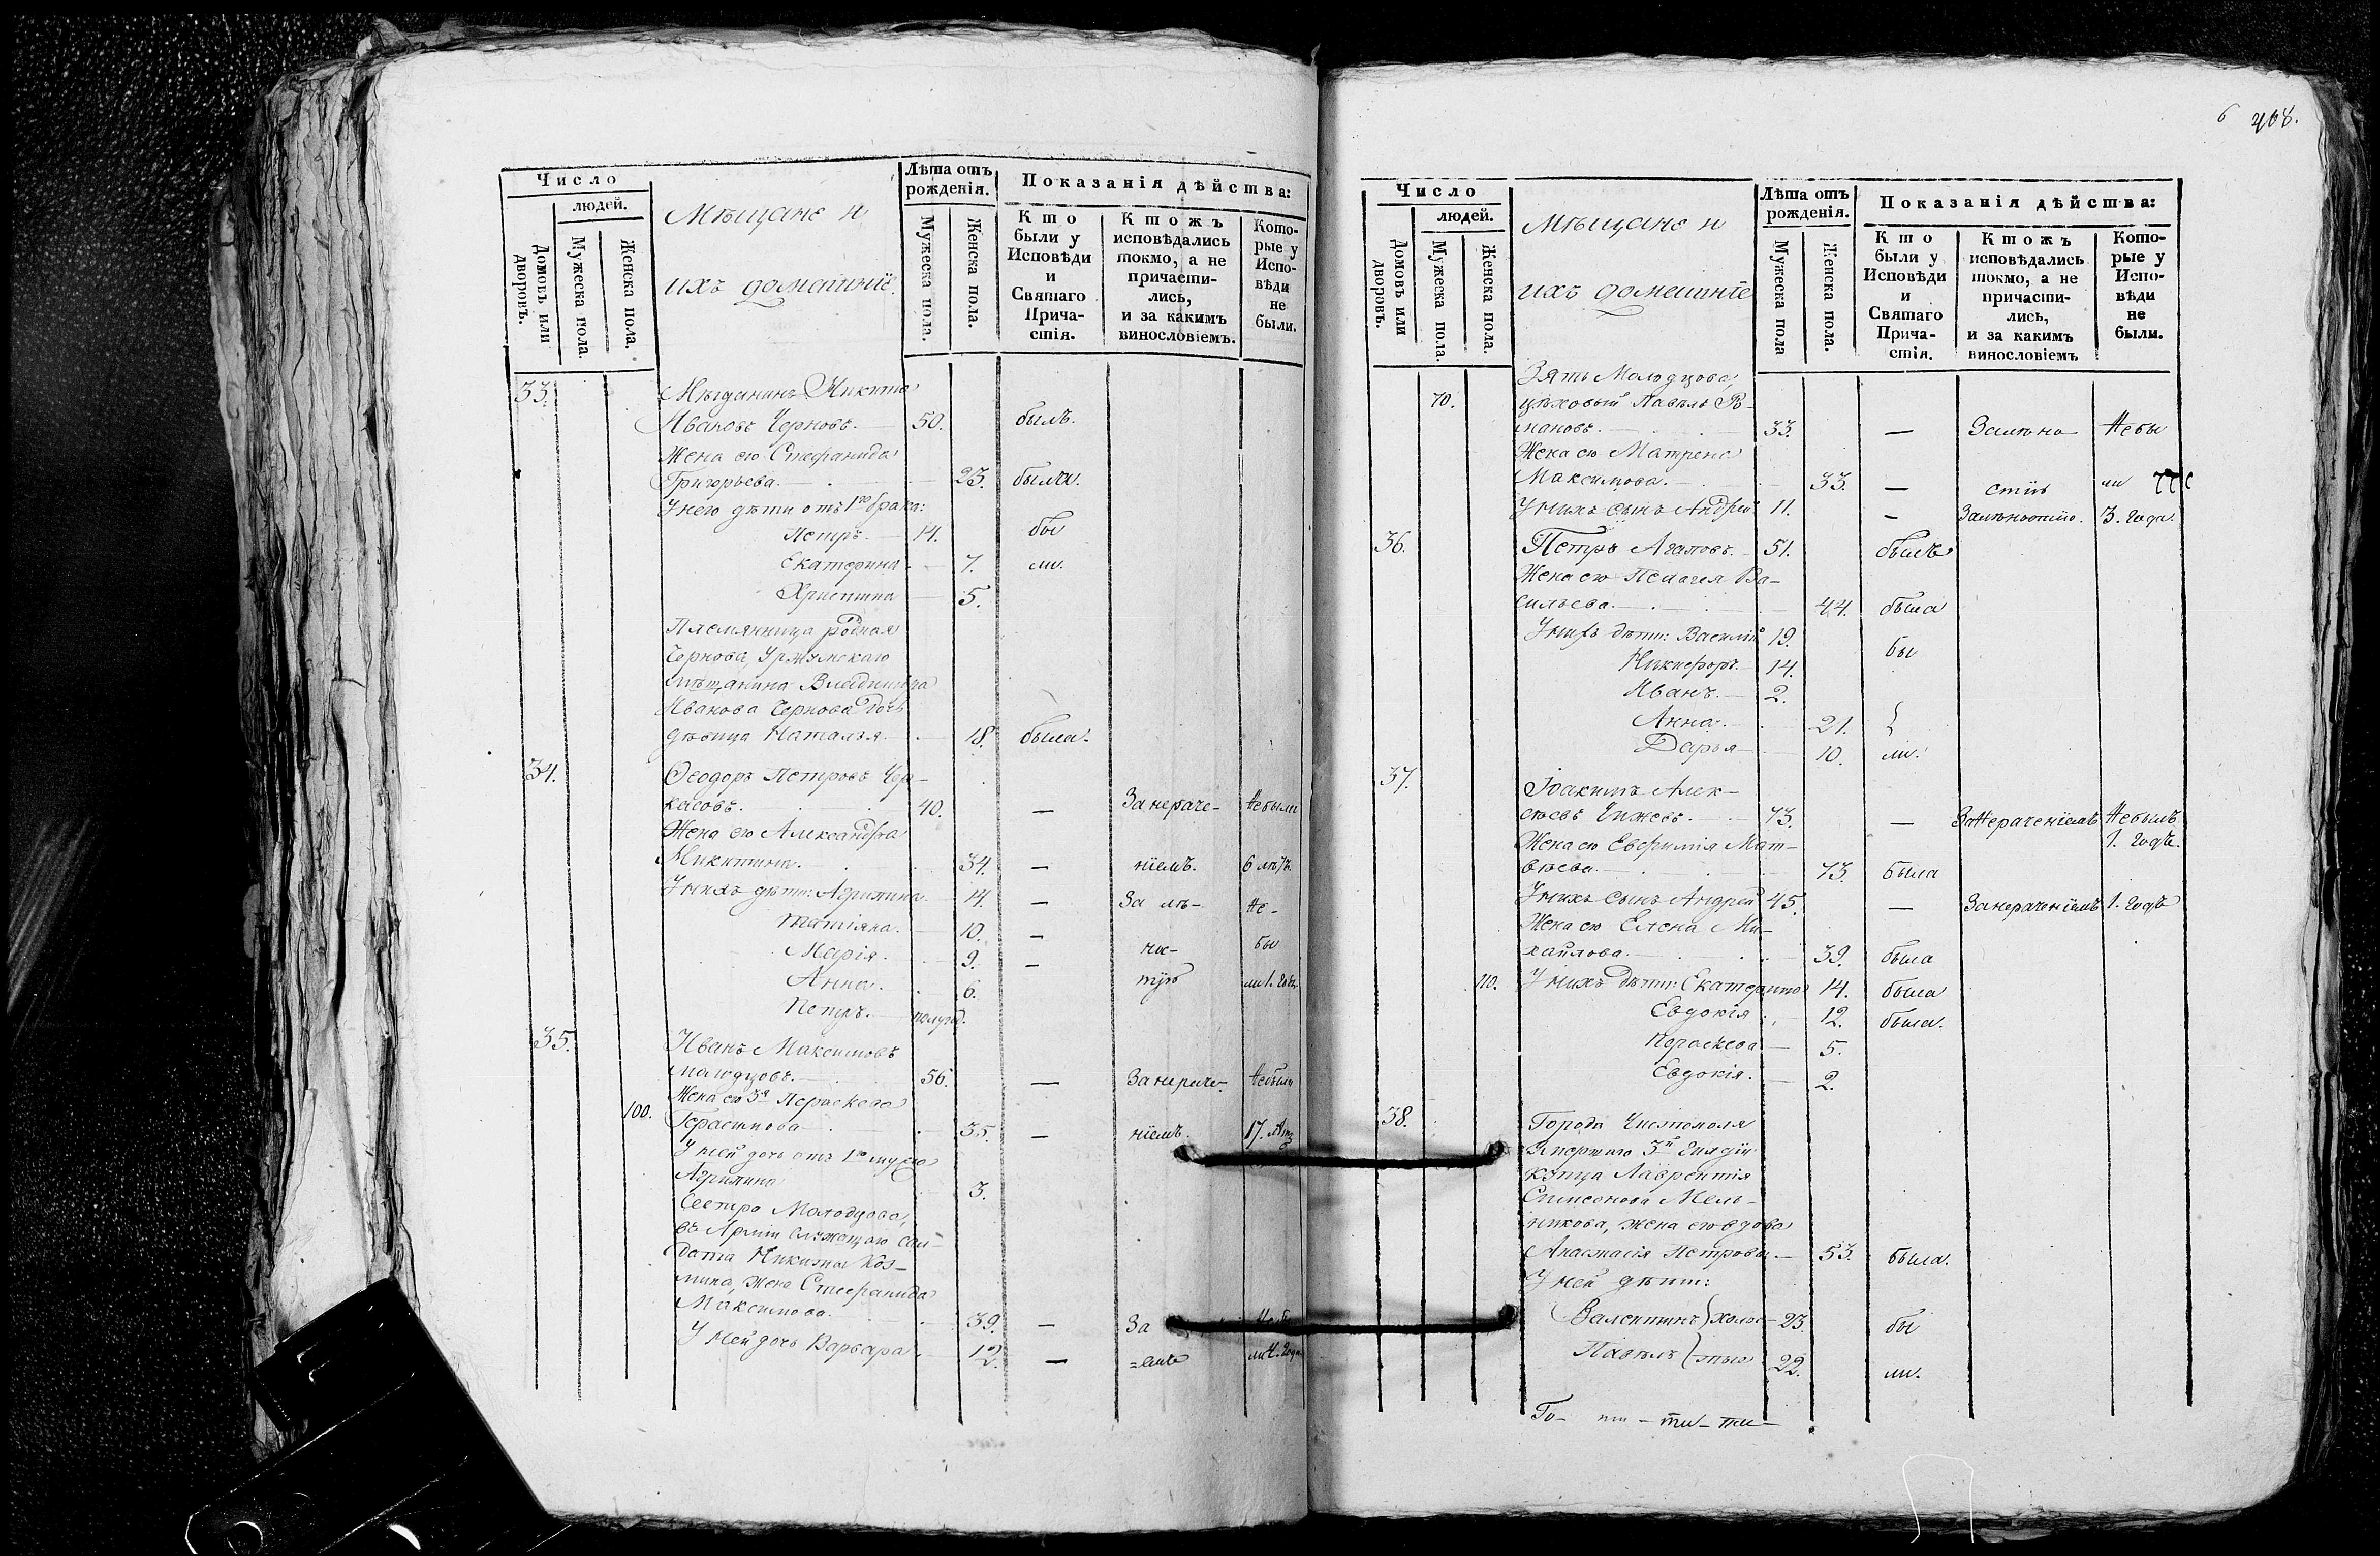 Число
людей.
Домовъ или дворовъ.
Мужеска пола.
Женска пола.
Мѣщане и
ихъ домашніе.
Лѣта отъ рожденія.
Мужеска пола.
Женска пола.
Показанія дѣйства:
Кто были у Исповѣди и Святаго Прича- стія.
Ктожъ исповѣдались токмо, а не причасти- лись, и за какимъ винословіемъ.
Кото- рые у Испо- вѣди не были.
33. Мѣщанинъ Никита
Ивановъ Черновъ. 50. былъ.
Жена его Стефанида
Григорьева. 23. была.
У него дѣти отъ 1го брака:
Петръ. 14. бы
Екатерина. 7. ли.
Христина 5.
Племянница родная
Чернова, Уржумскаго
мѣщанина Владимира
Иванова Чернова дочь
дѣвица Наталья. 18. была.
34. Ѳеодоръ Петровъ Чер-
касовъ. 40. — За нераче- Небыли
Жена его Александра
Никитина. 34. — ніемъ. 6 лѣтъ.
У нихъ дѣти: Агрипина. 14. — За мѣ- Не-
Татіяна. 10. —
Марія. 9. — бы
Анна. 6. ли 1. годъ
Петръ. полугод.
35. Иванъ Максимовъ
Молодцовъ. 56. — За нераче- Небыли
Жена его 3я Параскева
100. Герасимова 35. — ніемъ. 17. лѣтъ
У ней дочь отъ 1го мужа
Агрипина 3.
Сестра Молодцова,
въ Арміи служащаго сол-
дата Никиты Коз-
мина, жена Стефанида
Максимова. 39. — За
У ней дочь Варвара. 12. — =емъ ли 4. года
6 408.
Число
людей.
Домовъ или дворовъ.
Мужеска пола.
Женска пола.
Мѣщане и
ихъ домашніе
Лѣта отъ рожденія.
Мужеска пола
Женска пола.
Показанія дѣйства:
Кто были у Исповѣди и Святаго Прича- стія.
Ктожъ исповѣдались токмо, а не причасти- лись, и за какимъ винословіемъ
Кото- рые у Испо- вѣди не были.
Зять Молодцова,
70. цѣховый Павелъ Ро-
мановъ. 33. — Небы
Жена его Матрена
Максимова. 33. — ли
У нихъ сынъ Андрей 11. — 3. года.
36. Петръ Агаповъ. 51. былъ
Жена его Пелагея Ва-
сильева. 44. была
У нихъ дѣти: Василій 19.
Никифоръ. 14. бы
Иванъ. 2.
Анна. 21.
Дарья 10. ли.
37. Іоакимъ Алек-
сѣевъ Чижевъ. 73. — За нераченіемъ Небылъ
1. годъ.
Жена его Евфимія Мат-
вѣева. 73. была
У нихъ сынъ Андрей 45. — За нераченіемъ 1. годъ
Жена его Елена Ми-
хайлова. 39. была
110. У нихъ дѣти: Екатерина 14. была
Евдокія 12. была.
Параскева 5.
Евдокія. 2.
38. Города Чистополя
умершаго 3й Гильдіи
купца Лаврентія
Симеонова Мель-
никова, жена его вдова
Анастасія Петрова. 53. была.
У ней дѣти:
Валентинъ } холос- 23. бы
Павелъ } тые 22. ли.